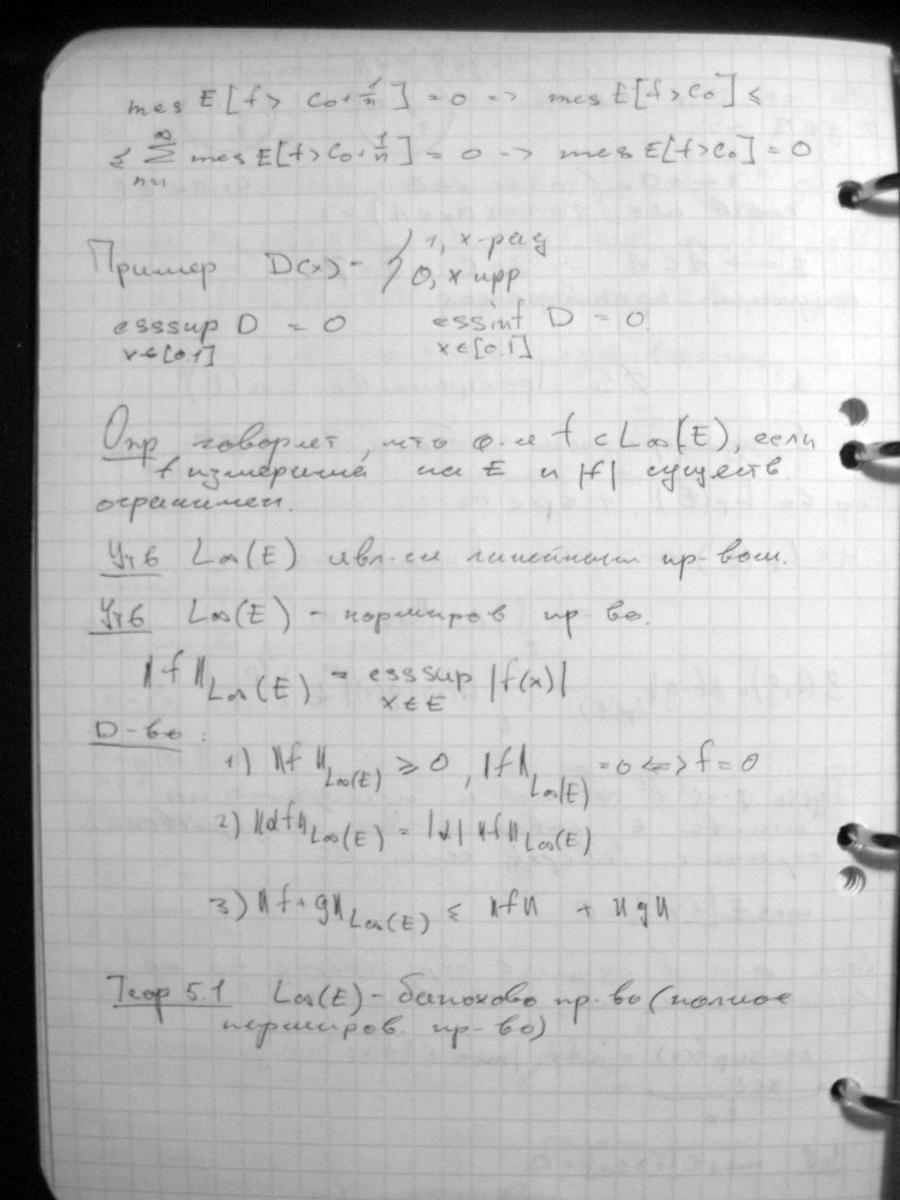 mes E[f > c₀+1/n] = 0 => mes E[f>c₀] ≤
≤ ∑_{n=1}^{∞} mes E[f>c₀+1/n] = 0 => mes E[f>c₀] = 0
Пример D(x) = { 1, x-рац
0, x ирр
esssup D = 0 essinf D = 0.
x∈[0,1] x∈[0,1]
Опр говорят, что ф-я f ∈ L∞(E), если
f измерима на E и |f| существ.
ограничен.
Утв L∞(E) явл-ся линейным пр-вом.
Утв L∞(E) - нормиров пр-во.
‖f‖_{L∞(E)} = esssup |f(x)|
x∈E
D-во:
1) ‖f‖_{L∞(E)} ≥ 0, ‖f‖_{L∞(E)} = 0 <=> f = 0
2) ‖αf‖_{L∞(E)} = |α| ‖f‖_{L∞(E)}
3) ‖f+g‖_{L∞(E)} ≤ ‖f‖ + ‖g‖
Теор 5.1 L∞(E) - банахово пр-во (полное
нормиров. пр-во)